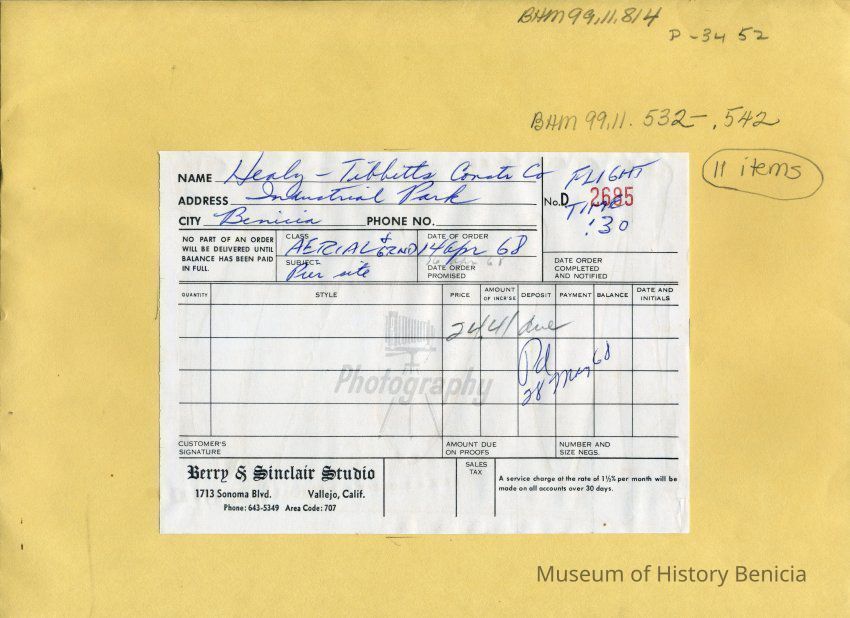 BAM 99.11.814
P-3452
BAM 99.11.532-.542
11 items
NAME Healy-Tibbitts Constr Co
ADDRESS Industrial Park
CITY Benicia PHONE NO.
No.D 2695
FLIGHT
TIME
:30
NO PART OF AN ORDER
WILL BE DELIVERED UNTIL
BALANCE HAS BEEN PAID
IN FULL.
CLASS
AERIAL & GRND
SUBJECT
Pier site
DATE OF ORDER
14 Apr 68
DATE ORDER
PROMISED
DATE ORDER
COMPLETED
AND NOTIFIED
QUANTITY STYLE PRICE AMOUNT OF INCR'SE DEPOSIT PAYMENT BALANCE DATE AND INITIALS
24.41 due
Pd
28 May 68
Photography
CUSTOMER'S
SIGNATURE
AMOUNT DUE
ON PROOFS
NUMBER AND
SIZE NEGS.
Berry & Sinclair Studio
1713 Sonoma Blvd. Vallejo, Calif.
Phone: 643-5349 Area Code: 707
SALES
TAX
A service charge at the rate of 1½% per month will be
made on all accounts over 30 days.
Museum of History Benicia